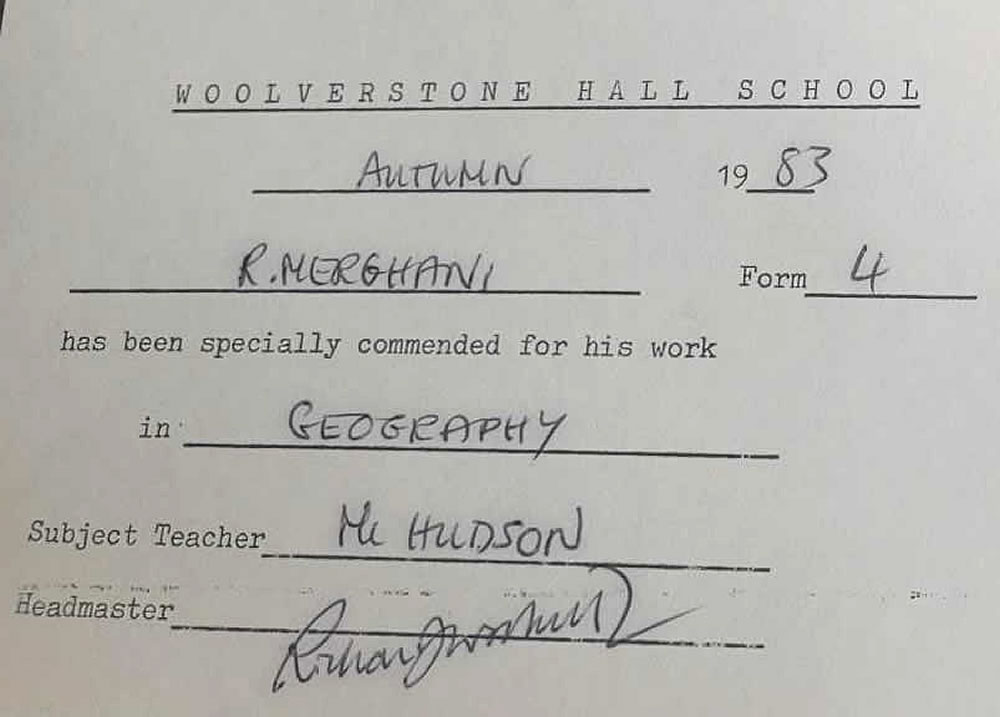 WOOLVERSTONE HALL SCHOOL
AUTUMN 1983
R. MERGHANI Form 4
has been specially commended for his work
in GEOGRAPHY
Subject Teacher Mr HUDSON
Headmaster Richard